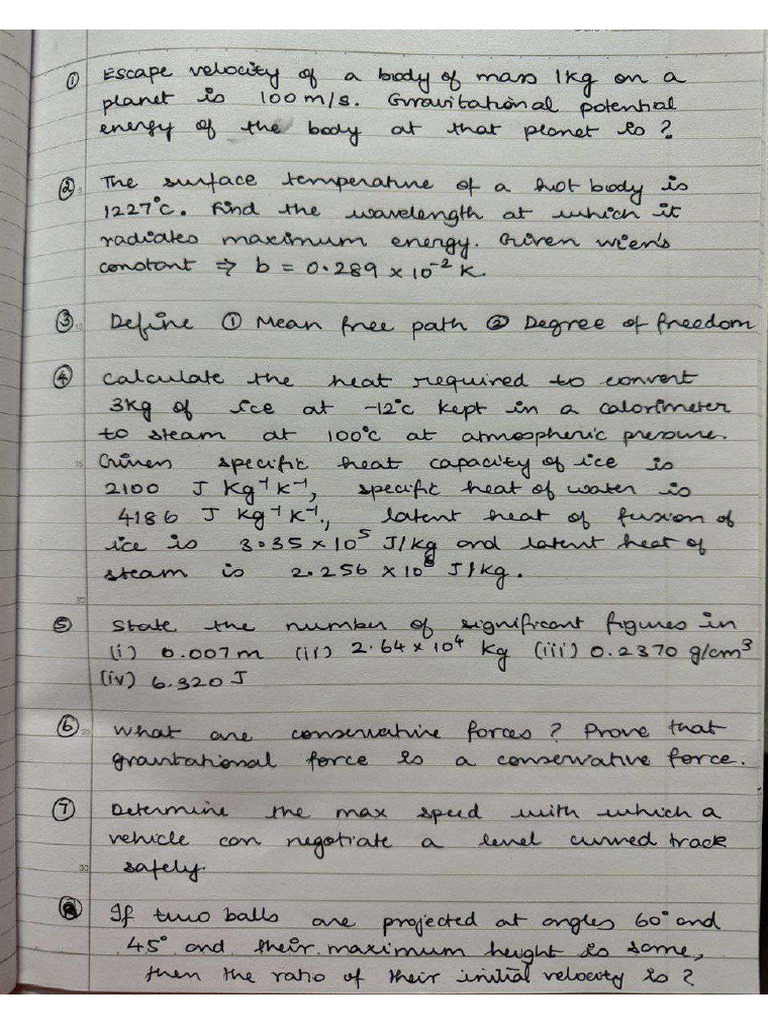 ① Escape velocity of a body of mass 1kg on a
planet is 100 m/s. Gravitational potential
energy of the body at that planet is ?
② The surface temperature of a hot body is
1227°c. Find the wavelength at which it
radiates maximum energy. Given wien's
constant ⇒ b = 0.289 × 10⁻² K.
③ Define ① Mean free path ② Degree of freedom
④ Calculate the heat required to convert
3kg of ice at -12°c kept in a calorimeter
to steam at 100°c at atmospheric pressure.
Given specific heat capacity of ice is
2100 J Kg⁻¹ K⁻¹, specific heat of water is
4186 J Kg⁻¹ K⁻¹., latent heat of fusion of
ice is 3.35 × 10⁵ J/kg and latent heat of
steam is 2.256 × 10 J/kg.
⑤ State the number of significant figures in
(i) 0.007m (ii) 2.64 × 10⁴ kg (iii) 0.2370 g/cm³
(iv) 6.320 J
⑥ What are conservative forces ? Prove that
gravitational force is a conservative force.
⑦ Determine the max speed with which a
vehicle can negotiate a level curved track
safely.
⑧ If two balls are projected at angles 60° and
45° and their maximum height is same,
then the ratio of their initial velocity is ?